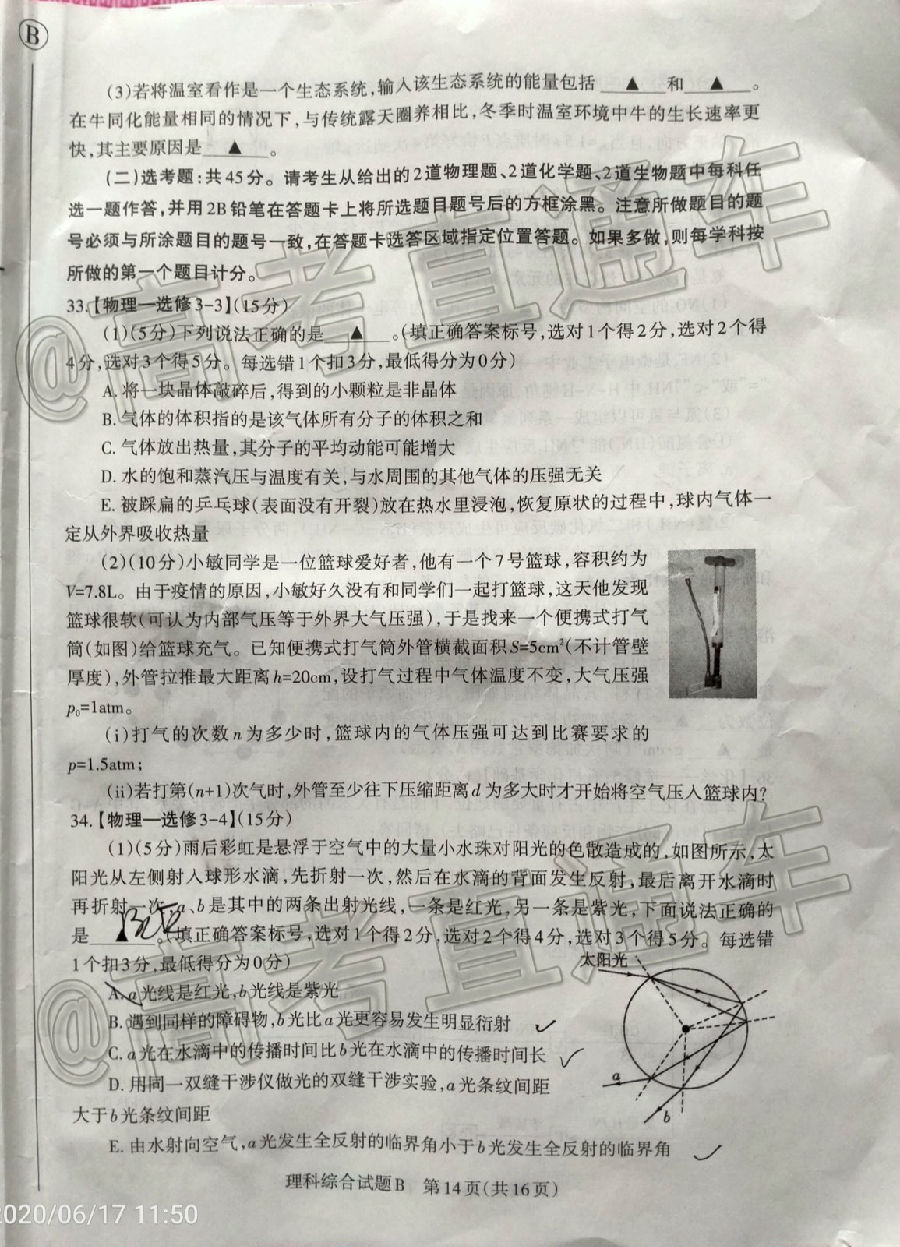 B
(3)若将温室看作是一个生态系统,输入该生态系统的能量包括 ▲ 和 ▲ 。
在牛同化能量相同的情况下,与传统露天圈养相比,冬季时温室环境中牛的生长速率更
快,其主要原因是 ▲ 。
(二)选考题:共45分。请考生从给出的2道物理题、2道化学题、2道生物题中每科任
选一题作答,并用2B铅笔在答题卡上将所选题目题号后的方框涂黑。注意所做题目的题
号必须与所涂题目的题号一致,在答题卡选答区域指定位置答题。如果多做,则每学科按
所做的第一个题目计分。
33.【物理—选修3-3】(15分)
(1)(5分)下列说法正确的是 ▲ 。(填正确答案标号,选对1个得2分,选对2个得
4分,选对3个得5分。每选错1个扣3分,最低得分为0分)
A. 将一块晶体敲碎后,得到的小颗粒是非晶体
B. 气体的体积指的是该气体所有分子的体积之和
C. 气体放出热量,其分子的平均动能可能增大
D. 水的饱和蒸汽压与温度有关,与水周围的其他气体的压强无关
E. 被踩扁的乒乓球(表面没有开裂)放在热水里浸泡,恢复原状的过程中,球内气体一
定从外界吸收热量
(2)(10分)小敏同学是一位篮球爱好者,他有一个7号篮球,容积约为
V=7.8L。由于疫情的原因,小敏好久没有和同学们一起打篮球,这天他发现
篮球很软(可认为内部气压等于外界大气压强),于是找来一个便携式打气
筒(如图)给篮球充气。已知便携式打气筒外管横截面积S=5cm²(不计管壁
厚度),外管拉推最大距离h=20cm,设打气过程中气体温度不变,大气压强
p₀=1atm。
(i)打气的次数n为多少时,篮球内的气体压强可达到比赛要求的
p=1.5atm;
(ii)若打第(n+1)次气时,外管至少往下压缩距离d为多大时才开始将空气压入篮球内?
34.【物理—选修3-4】(15分)
(1)(5分)雨后彩虹是悬浮于空气中的大量小水珠对阳光的色散造成的,如图所示,太
阳光从左侧射入球形水滴,先折射一次,然后在水滴的背面发生反射,最后离开水滴时
再折射一次。a、b是其中的两条出射光线,一条是红光,另一条是紫光,下面说法正确的
是 ▲ 。(填正确答案标号,选对1个得2分,选对2个得4分,选对3个得5分。每选错
1个扣3分,最低得分为0分)
太阳光
A. a光线是红光,b光线是紫光
B. 遇到同样的障碍物,b光比a光更容易发生明显衍射
C. a光在水滴中的传播时间比b光在水滴中的传播时间长
D. 用同一双缝干涉仪做光的双缝干涉实验,a光条纹间距
大于b光条纹间距
a
b
E. 由水射向空气,a光发生全反射的临界角小于b光发生全反射的临界角
理科综合试题B 第14页(共16页)
2020/06/17 11:50
@高考直通车
@高考直通车